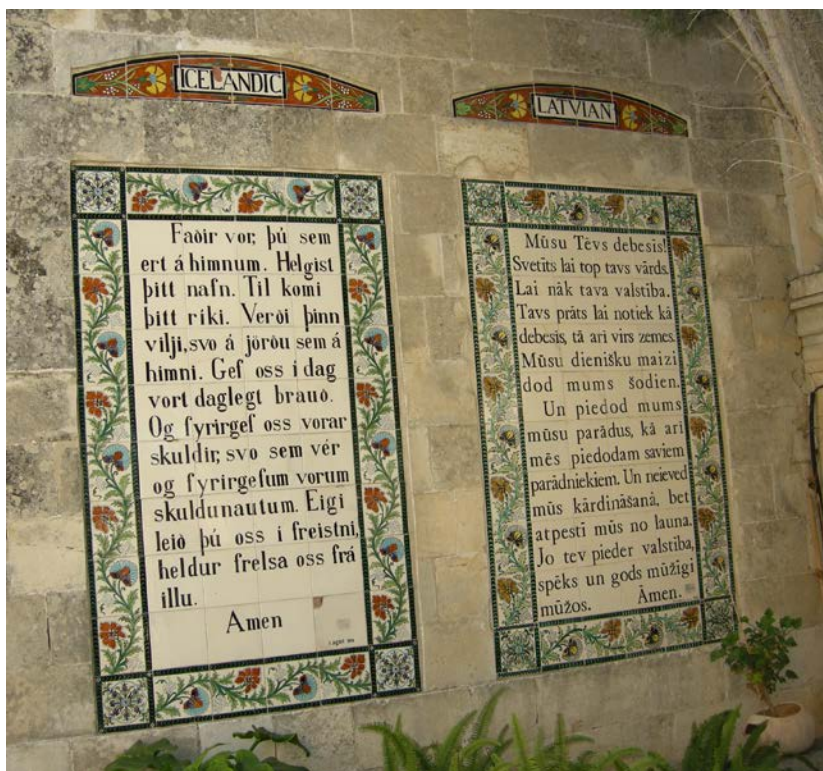 ICELANDIC
Faðir vor, þú sem
ert á himnum. Helgist
þitt nafn. Til komi
þitt ríki. Verði þinn
vilji, svo á jörðu sem á
himni. Gef oss í dag
vort daglegt brauð.
Og fyrirgef oss vorar
skuldir, svo sem vér
og fyrirgefum vorum
skuldunautum. Eigi
leið þú oss í freistni,
heldur frelsa oss frá
illu.
Amen
LATVIAN
Mūsu Tēvs debesīs!
Svētīts lai top tavs vārds.
Lai nāk tava valstība.
Tavs prāts lai notiek kā
debesīs, tā arī virs zemes.
Mūsu dienišķu maizi
dod mums šodien.
Un piedod mums
mūsu parādus, kā arī
mēs piedodam saviem
parādniekiem. Un neieved
mūs kārdināšanā, bet
atpestī mūs no ļauna.
Jo tev pieder valstība,
spēks un gods mūžīgi
mūžos. Āmen.